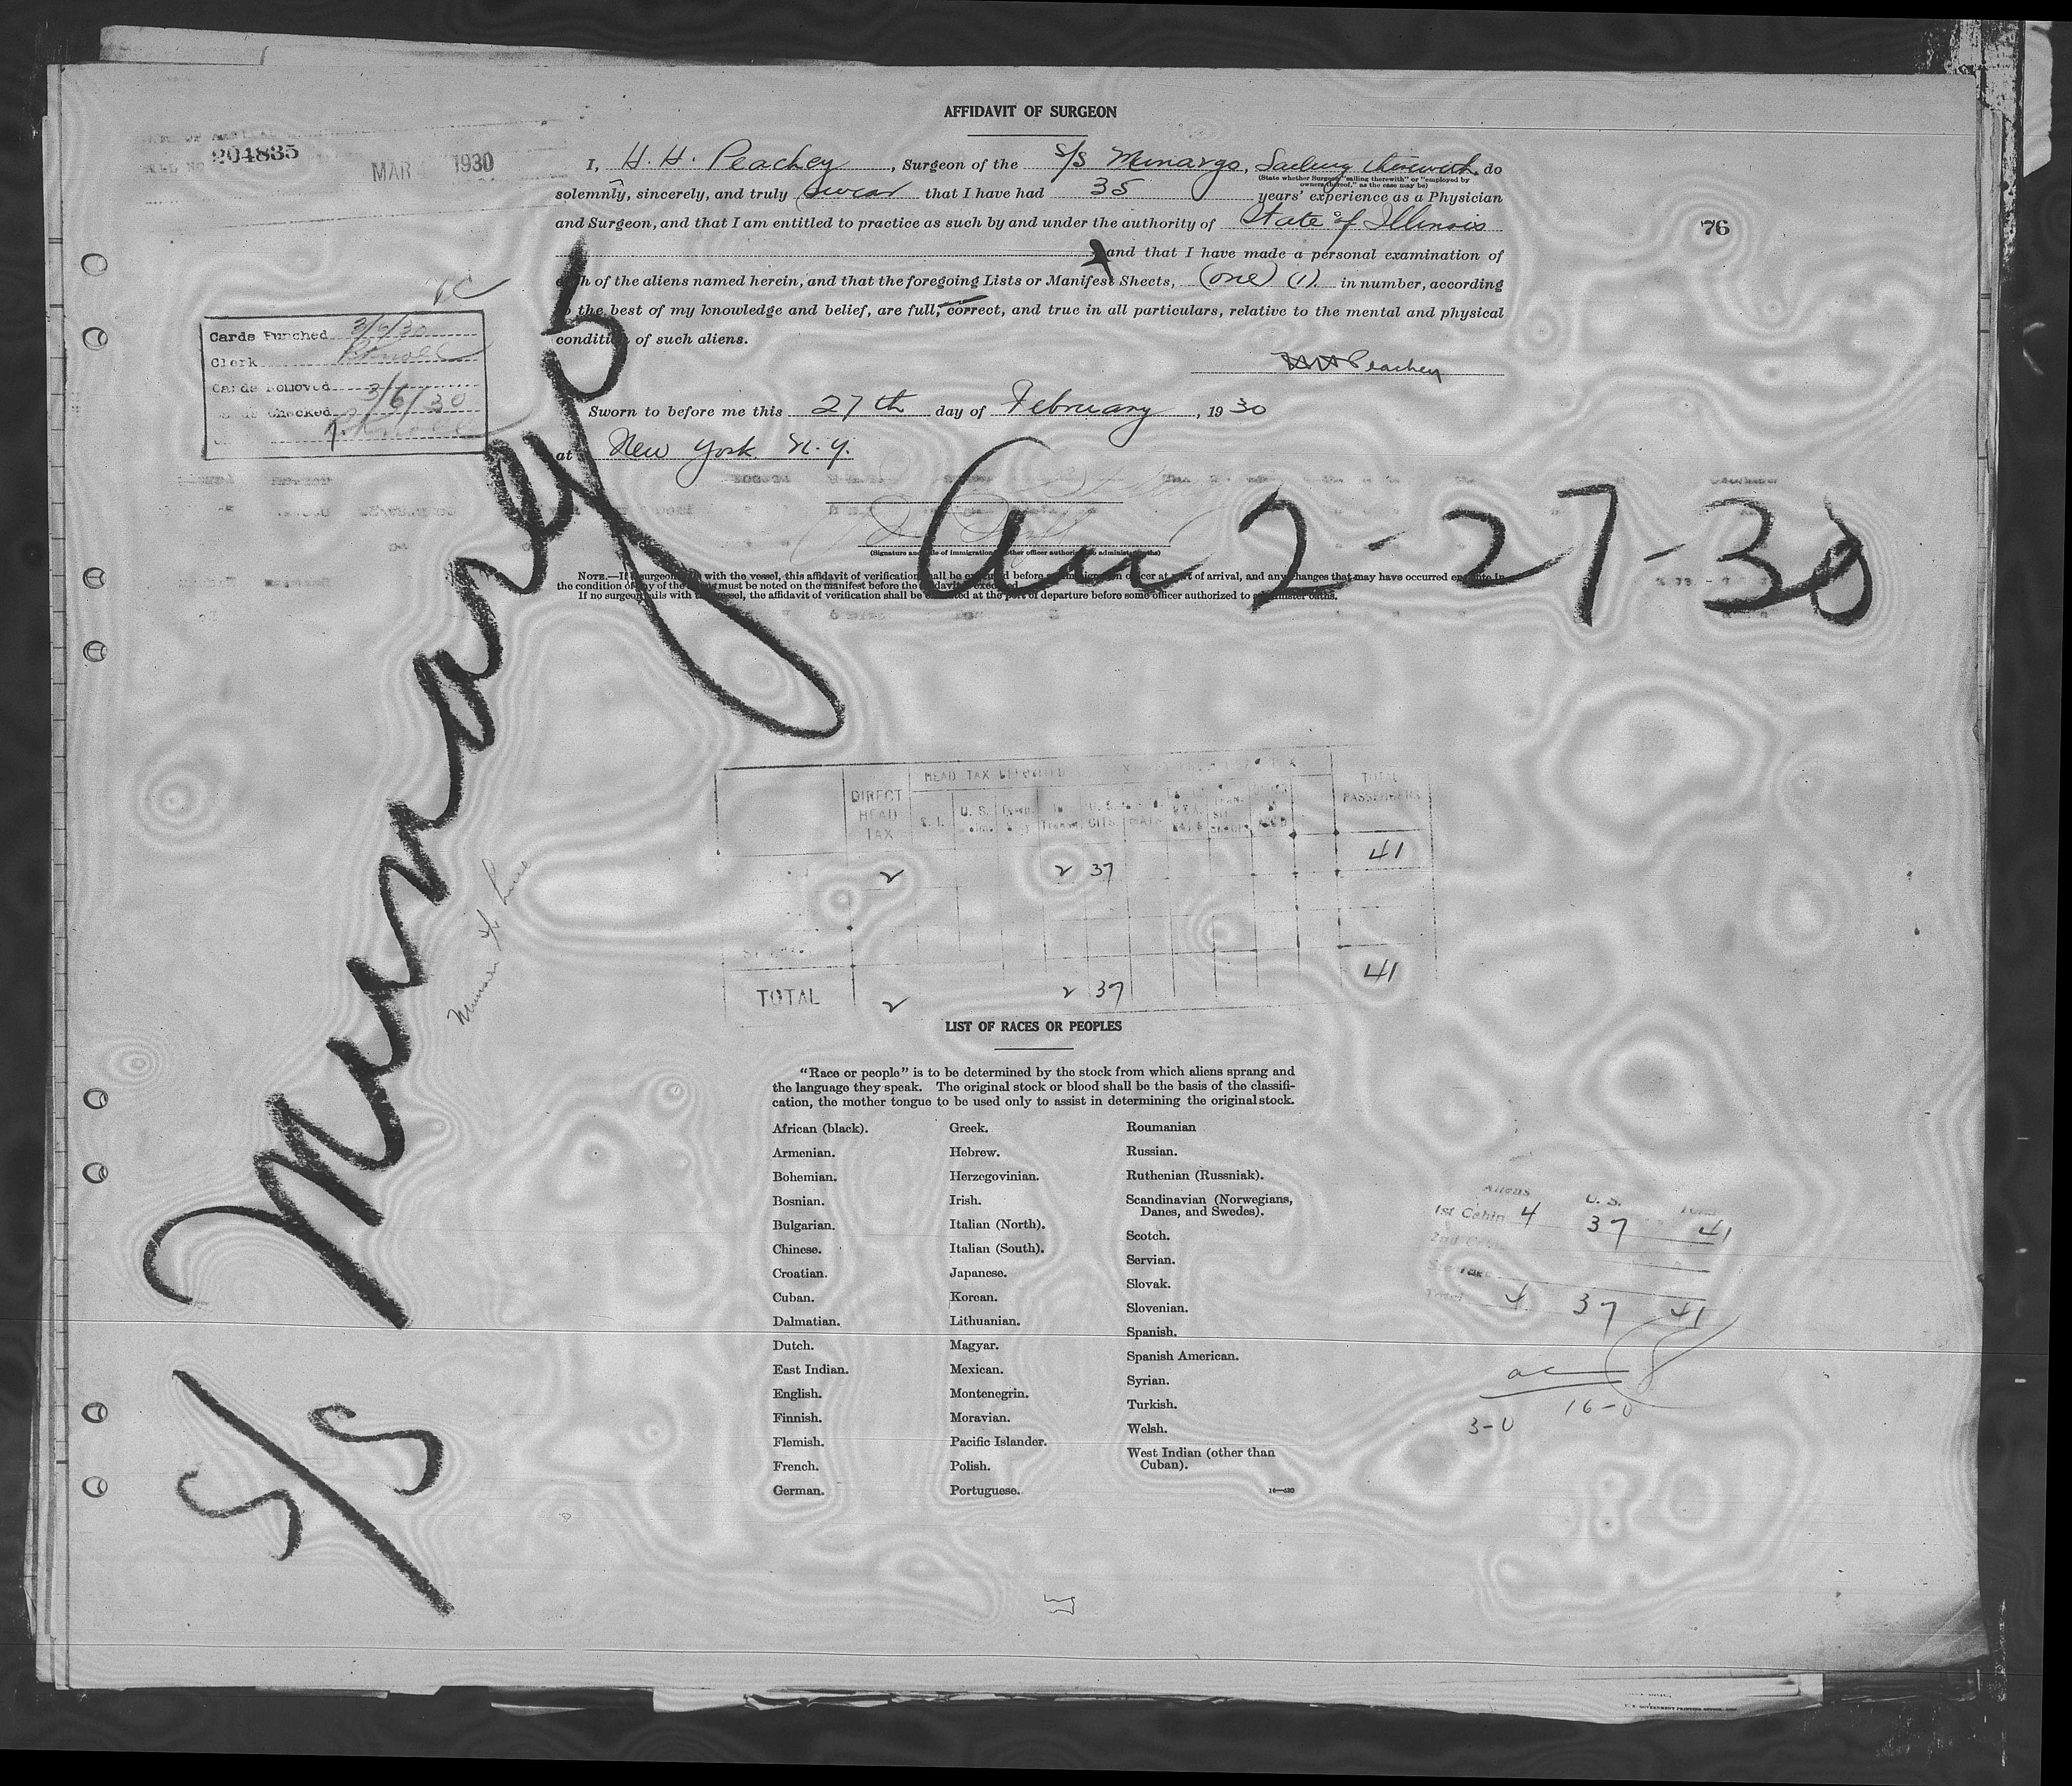 AFFIDAVIT OF SURGEON
204835
MAR 1930
I, H. H. Peachey, Surgeon of the S/S Munargo, Sailing therewith, do
(State whether Surgeon "sailing therewith" or "employed by
owners thereof," as the case may be)
solemnly, sincerely, and truly swear that I have had 35 years' experience as a Physician
and Surgeon, and that I am entitled to practice as such by and under the authority of State of Illinois
76
and that I have made a personal examination of
of the aliens named herein, and that the foregoing Lists or Manifest Sheets, (one) (1) in number, according
the best of my knowledge and belief, are full, correct, and true in all particulars, relative to the mental and physical
condition of such aliens.
HH Peachey
Cards Punched 3/6/30
Clerk
Cards Removed 3/6/30
Checked
Sworn to before me this 27th day of February, 1930
at New York N.Y.
(Signature and title of immigration or other officer authorized to administer oaths)
NOTE.—If surgeon with the vessel, this affidavit of verification shall be executed before an immigration officer at port of arrival, and any changes that may have occurred en route in
the condition of any of the must be noted on the manifest before the affidavit is executed.
If no surgeon sails with the vessel, the affidavit of verification shall be executed at the port of departure before some officer authorized to administer oaths.
S/S Munargo
Arr 2-27-30
Munson SS Line
HEAD TAX
TOTAL
DIRECT
HEAD
TAX
S. I.
U. S.
CITS.
PASSENGERS
2 2 37 41
TOTAL 2 2 37 41
LIST OF RACES OR PEOPLES
"Race or people" is to be determined by the stock from which aliens sprang and
the language they speak. The original stock or blood shall be the basis of the classifi-
cation, the mother tongue to be used only to assist in determining the original stock.
African (black).
Armenian.
Bohemian.
Bosnian.
Bulgarian.
Chinese.
Croatian.
Cuban.
Dalmatian.
Dutch.
East Indian.
English.
Finnish.
Flemish.
French.
German.
Greek.
Hebrew.
Herzegovinian.
Irish.
Italian (North).
Italian (South).
Japanese.
Korean.
Lithuanian.
Magyar.
Mexican.
Montenegrin.
Moravian.
Pacific Islander.
Polish.
Portuguese.
Roumanian
Russian.
Ruthenian (Russniak).
Scandinavian (Norwegians,
Danes, and Swedes).
Scotch.
Servian.
Slovak.
Slovenian.
Spanish.
Spanish American.
Syrian.
Turkish.
Welsh.
West Indian (other than
Cuban).
Aliens U. S. Total
1st Cabin 4 37 41
2nd Cabin
Steerage
Total 4 37 41
3-0 16-0